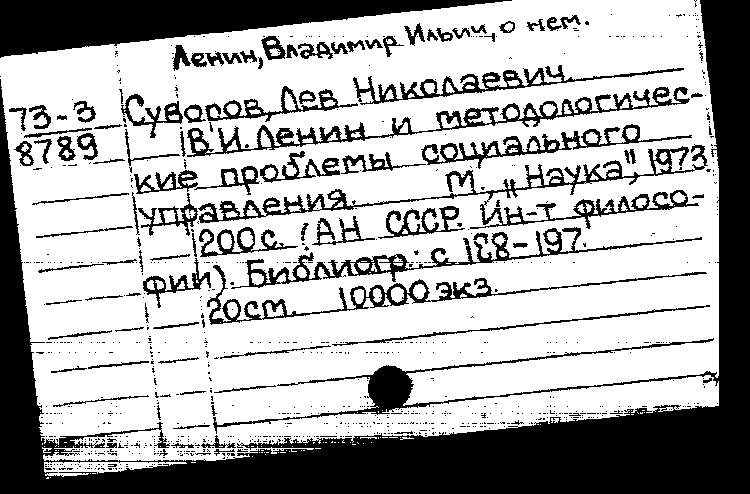 Ленин, Владимир Ильич, о нем.
73-3
8789
Суворов, Лев Николаевич.
В.И. Ленин и методологичес-
кие проблемы социального
управления. М., „Наука", 1973
200с. (АН СССР. Ин-т филосо-
фии). Библиогр.: с 188-197.
20ст. 10000 экз.